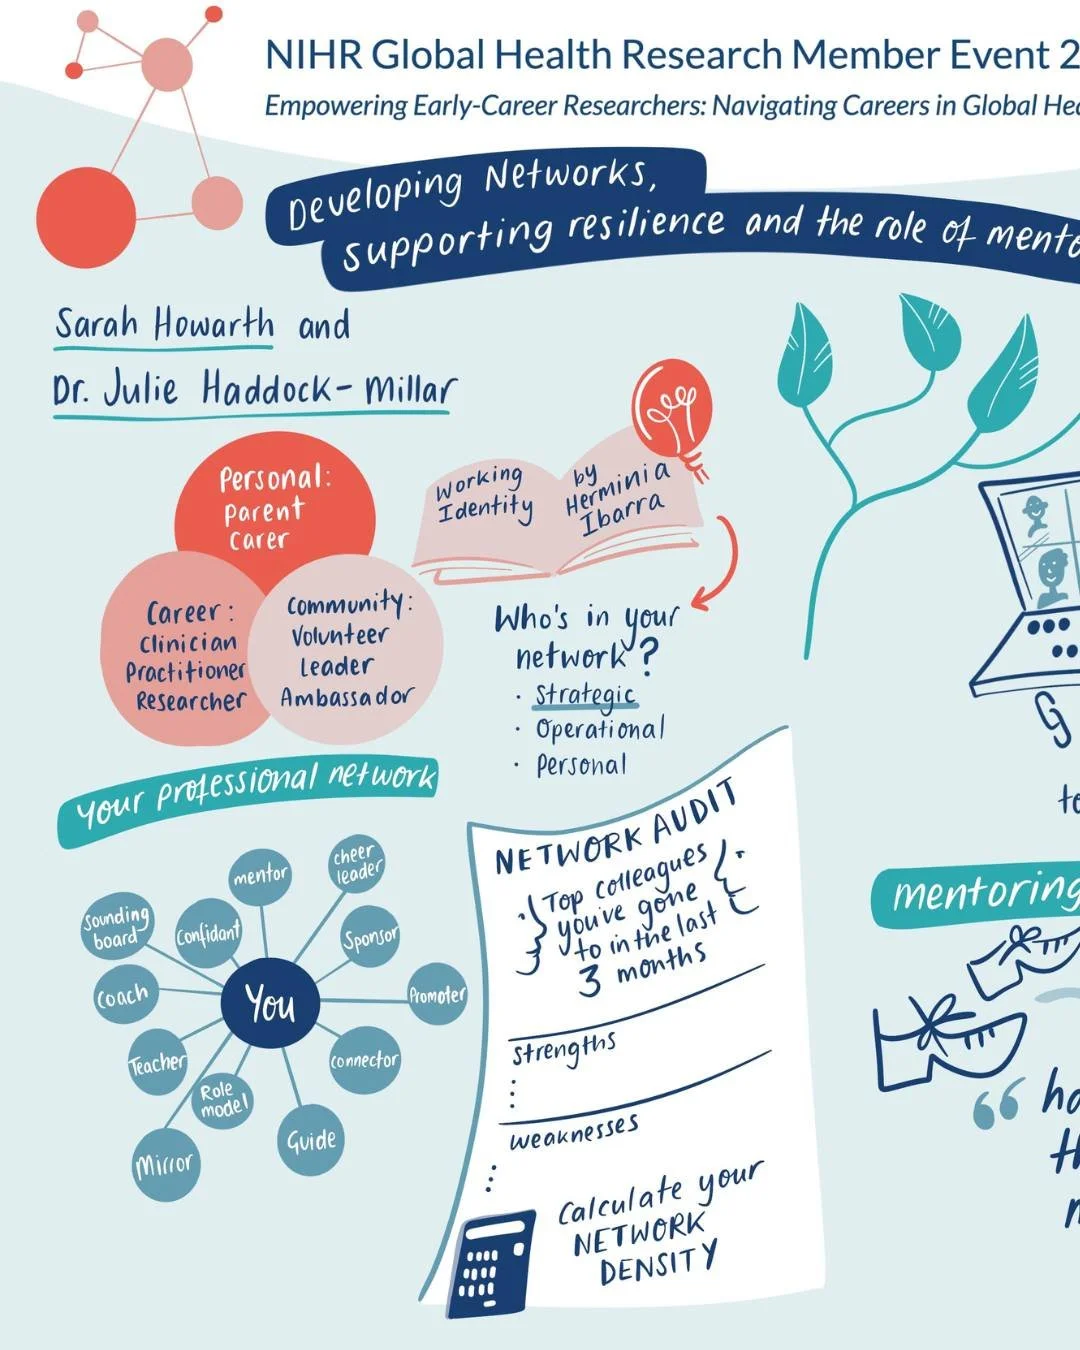 NIHR Global Health Research Member Event 2
Empowering Early-Career Researchers: Navigating Careers in Global
Developing Networks,
supporting resilience and the role of
Sarah Howarth and
Dr. Julie Haddock-Millar
Personal:
Parent
Carer
Career:
Clinician
Practitioner
Researcher
Community:
Volunteer
Leader
Ambassador
Working
Identity
by
Herminia
Ibarra
Who's in your
network?
· Strategic
· Operational
· Personal
Your professional network
mentor
cheer
leader
Sounding
board
Confidant
Sponsor
Coach
You
Promoter
Teacher
Connector
Role
model
Guide
Mirror
NETWORK AUDIT
Top colleagues
you've gone
to in the last
3 months
Strengths
Weaknesses
Calculate your
NETWORK
DENSITY
mentoring